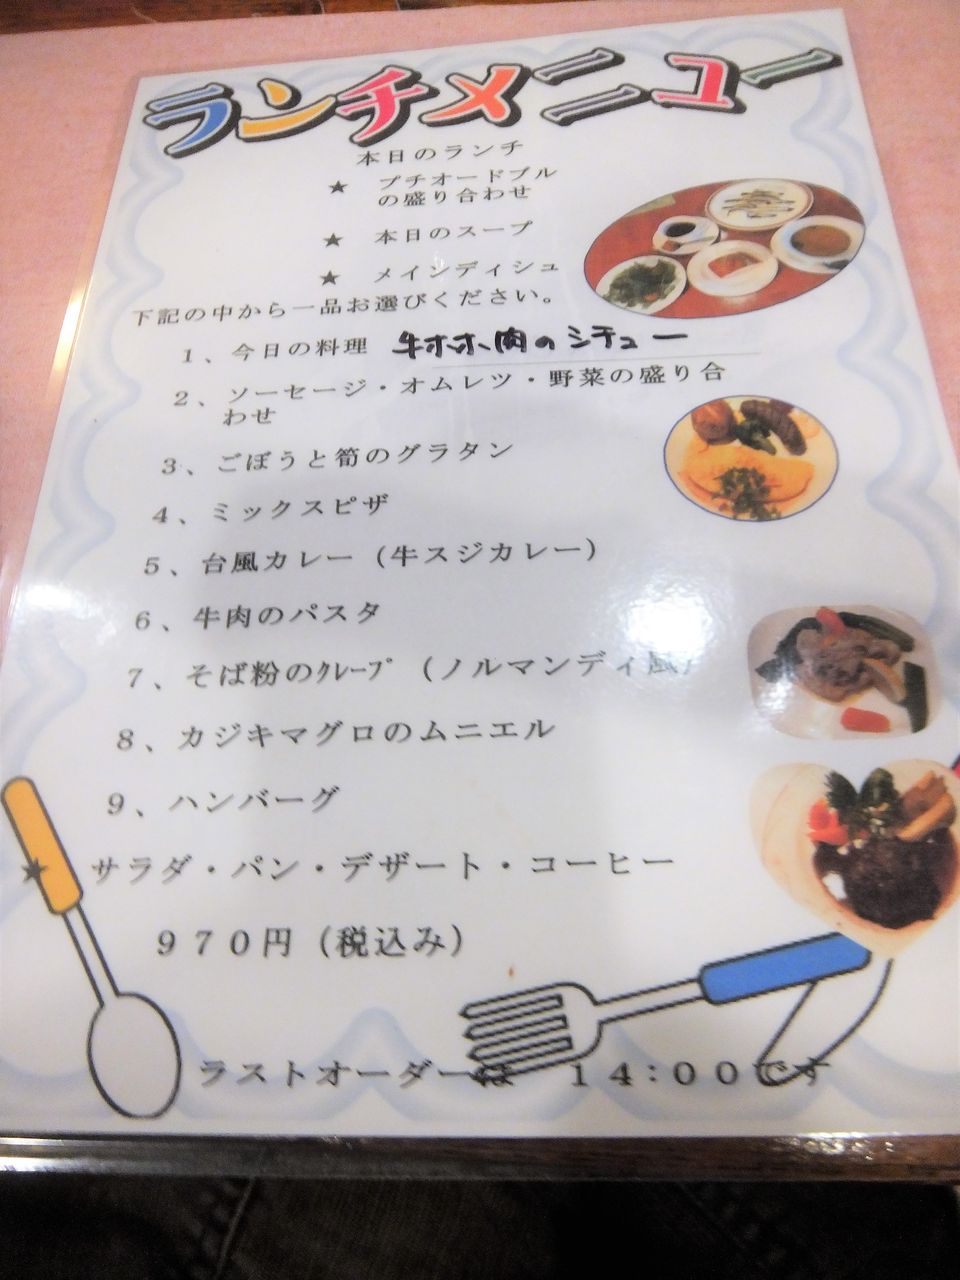 ランチメニュー
本日のランチ
★ プチオードブル
の盛り合わせ
★ 本日のスープ
★ メインディシュ
下記の中から一品お選びください。
１、今日の料理 牛ホホ肉のシチュー
２、ソーセージ・オムレツ・野菜の盛り合
わせ
３、ごぼうと筍のグラタン
４、ミックスピザ
５、台風カレー（牛スジカレー）
６、牛肉のパスタ
７、そば粉のｸﾚｰﾌﾟ（ノルマンディ風）
８、カジキマグロのムニエル
９、ハンバーグ
★ サラダ・パン・デザート・コーヒー
９７０円（税込み）
ラストオーダーは １４：００です